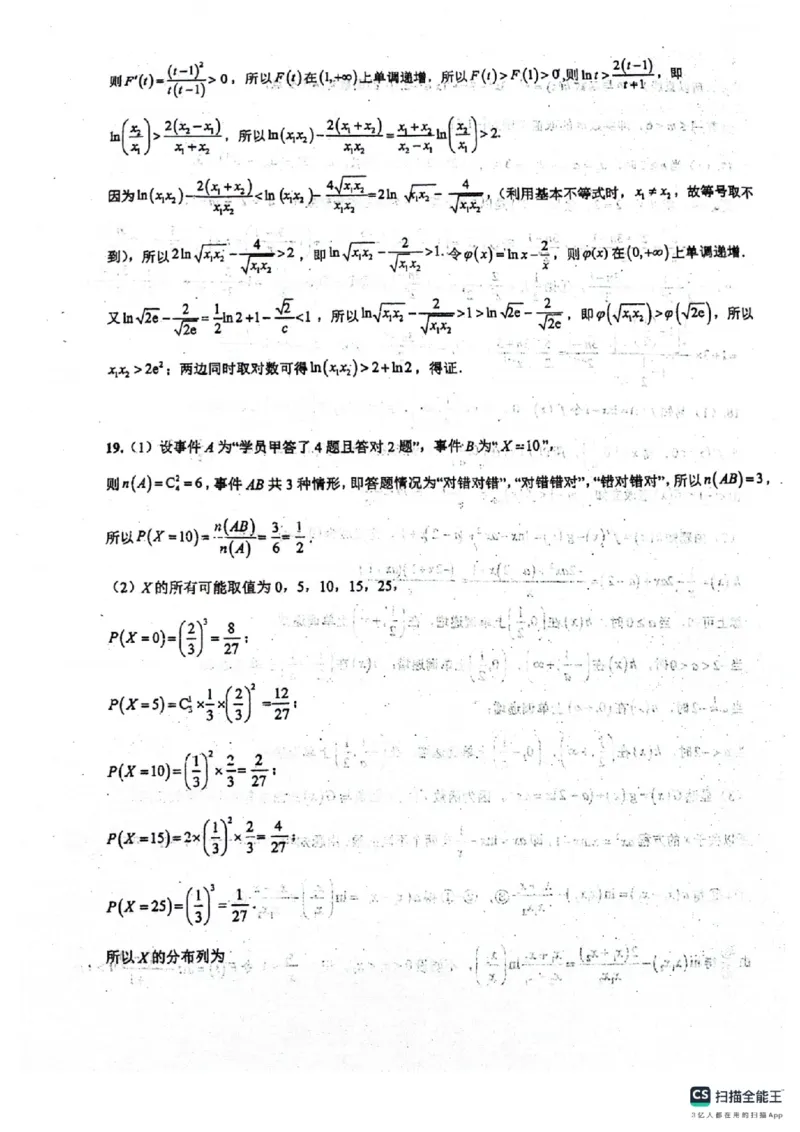 则F′(t)=(t-1)²/t(t-1)>0，所以F(t)在(1,+∞)上单调递增，所以F(t)>F(1)>0,则ln t>2(t-1)/t+1，即
ln(x₂/x₁)>2(x₂-x₁)/x₁+x₂，所以ln(x₁x₂)-2(x₁+x₂)/x₁x₂=x₁+x₂/x₂-x₁ ln(x₂/x₁)>2.
因为ln(x₁x₂)-2(x₁+x₂)/x₁x₂<ln(x₁x₂)-4√x₁x₂/x₁x₂=2ln√x₁x₂-4/√x₁x₂，(利用基本不等式时，x₁≠x₂，故等号取不
到)，所以2ln√x₁x₂-4/√x₁x₂>2，即ln√x₁x₂-2/√x₁x₂>1.令φ(x)=ln x-2/x，则φ(x)在(0,+∞)上单调递增.
又ln√2e-2/√2e=1/2 ln2+1-√2/e<1，所以ln√x₁x₂-2/√x₁x₂>1>ln√2e-2/√2e，即φ(√x₁x₂)>φ(√2e)，所以
x₁x₂>2e²；两边同时取对数可得ln(x₁x₂)>2+ln2，得证.
19.（1）设事件A为“学员甲答了4题且答对2题”，事件B为“X=10”，
则n(A)=C₄²=6，事件AB共3种情形，即答题情况为“对错对错”，“对错错对”，“错对错对”，所以n(AB)=3，
所以P(X=10)=n(AB)/n(A)=3/6=1/2.
（2）X的所有可能取值为0，5，10，15，25，
P(X=0)=(2/3)³=8/27；
P(X=5)=C₃¹×1/3×(2/3)²=12/27；
P(X=10)=(1/3)²×2/3=2/27；
P(X=15)=2×(1/3)²×2/3=4/27；
P(X=25)=(1/3)³=1/27.
所以X的分布列为
CS 扫描全能王
3亿人都在用的扫描App